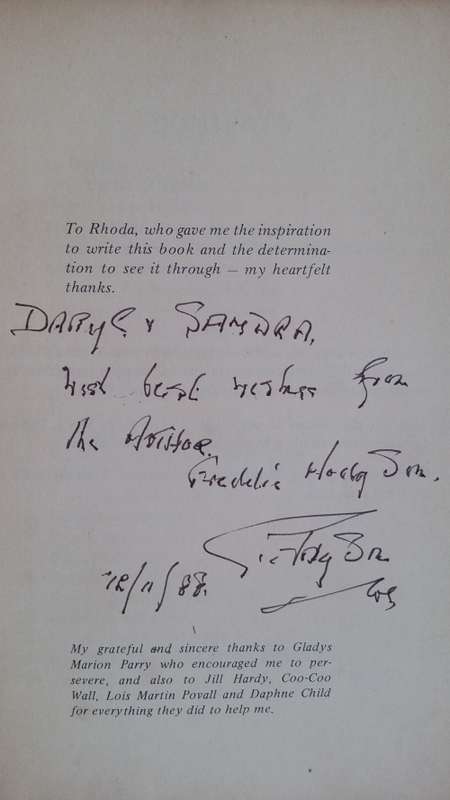 To Rhoda, who gave me the inspiration
to write this book and the determina-
tion to see it through — my heartfelt
thanks.
DARYL & SANDRA,
With best wishes from
the Author,
Freddie
12/11/88.
My grateful and sincere thanks to Gladys
Marion Parry who encouraged me to per-
severe, and also to Jill Hardy, Coo-Coo
Wall, Lois Martin Povall and Daphne Child
for everything they did to help me.